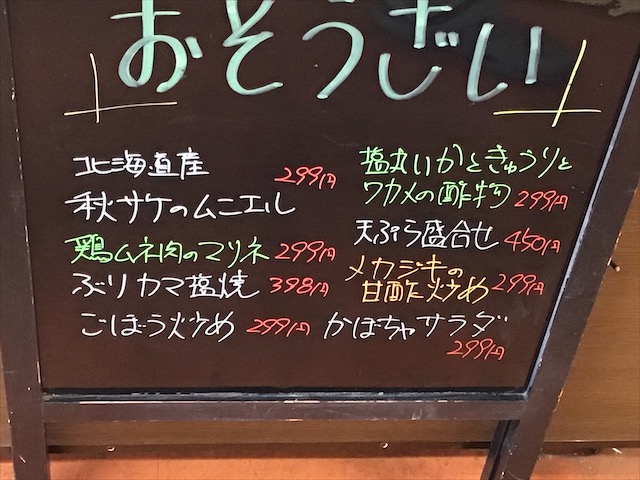 おそうざい
北海道産
秋サケのムニエル 299円
鶏ムネ肉のマリネ 299円
ぶりカマ塩焼 398円
ごぼう炒め 299円
塩丸いかときゅうりと
ワカメの酢物 299円
天ぷら盛合せ 450円
メカジキの
甘酢炒め 299円
かぼちゃサラダ
299円